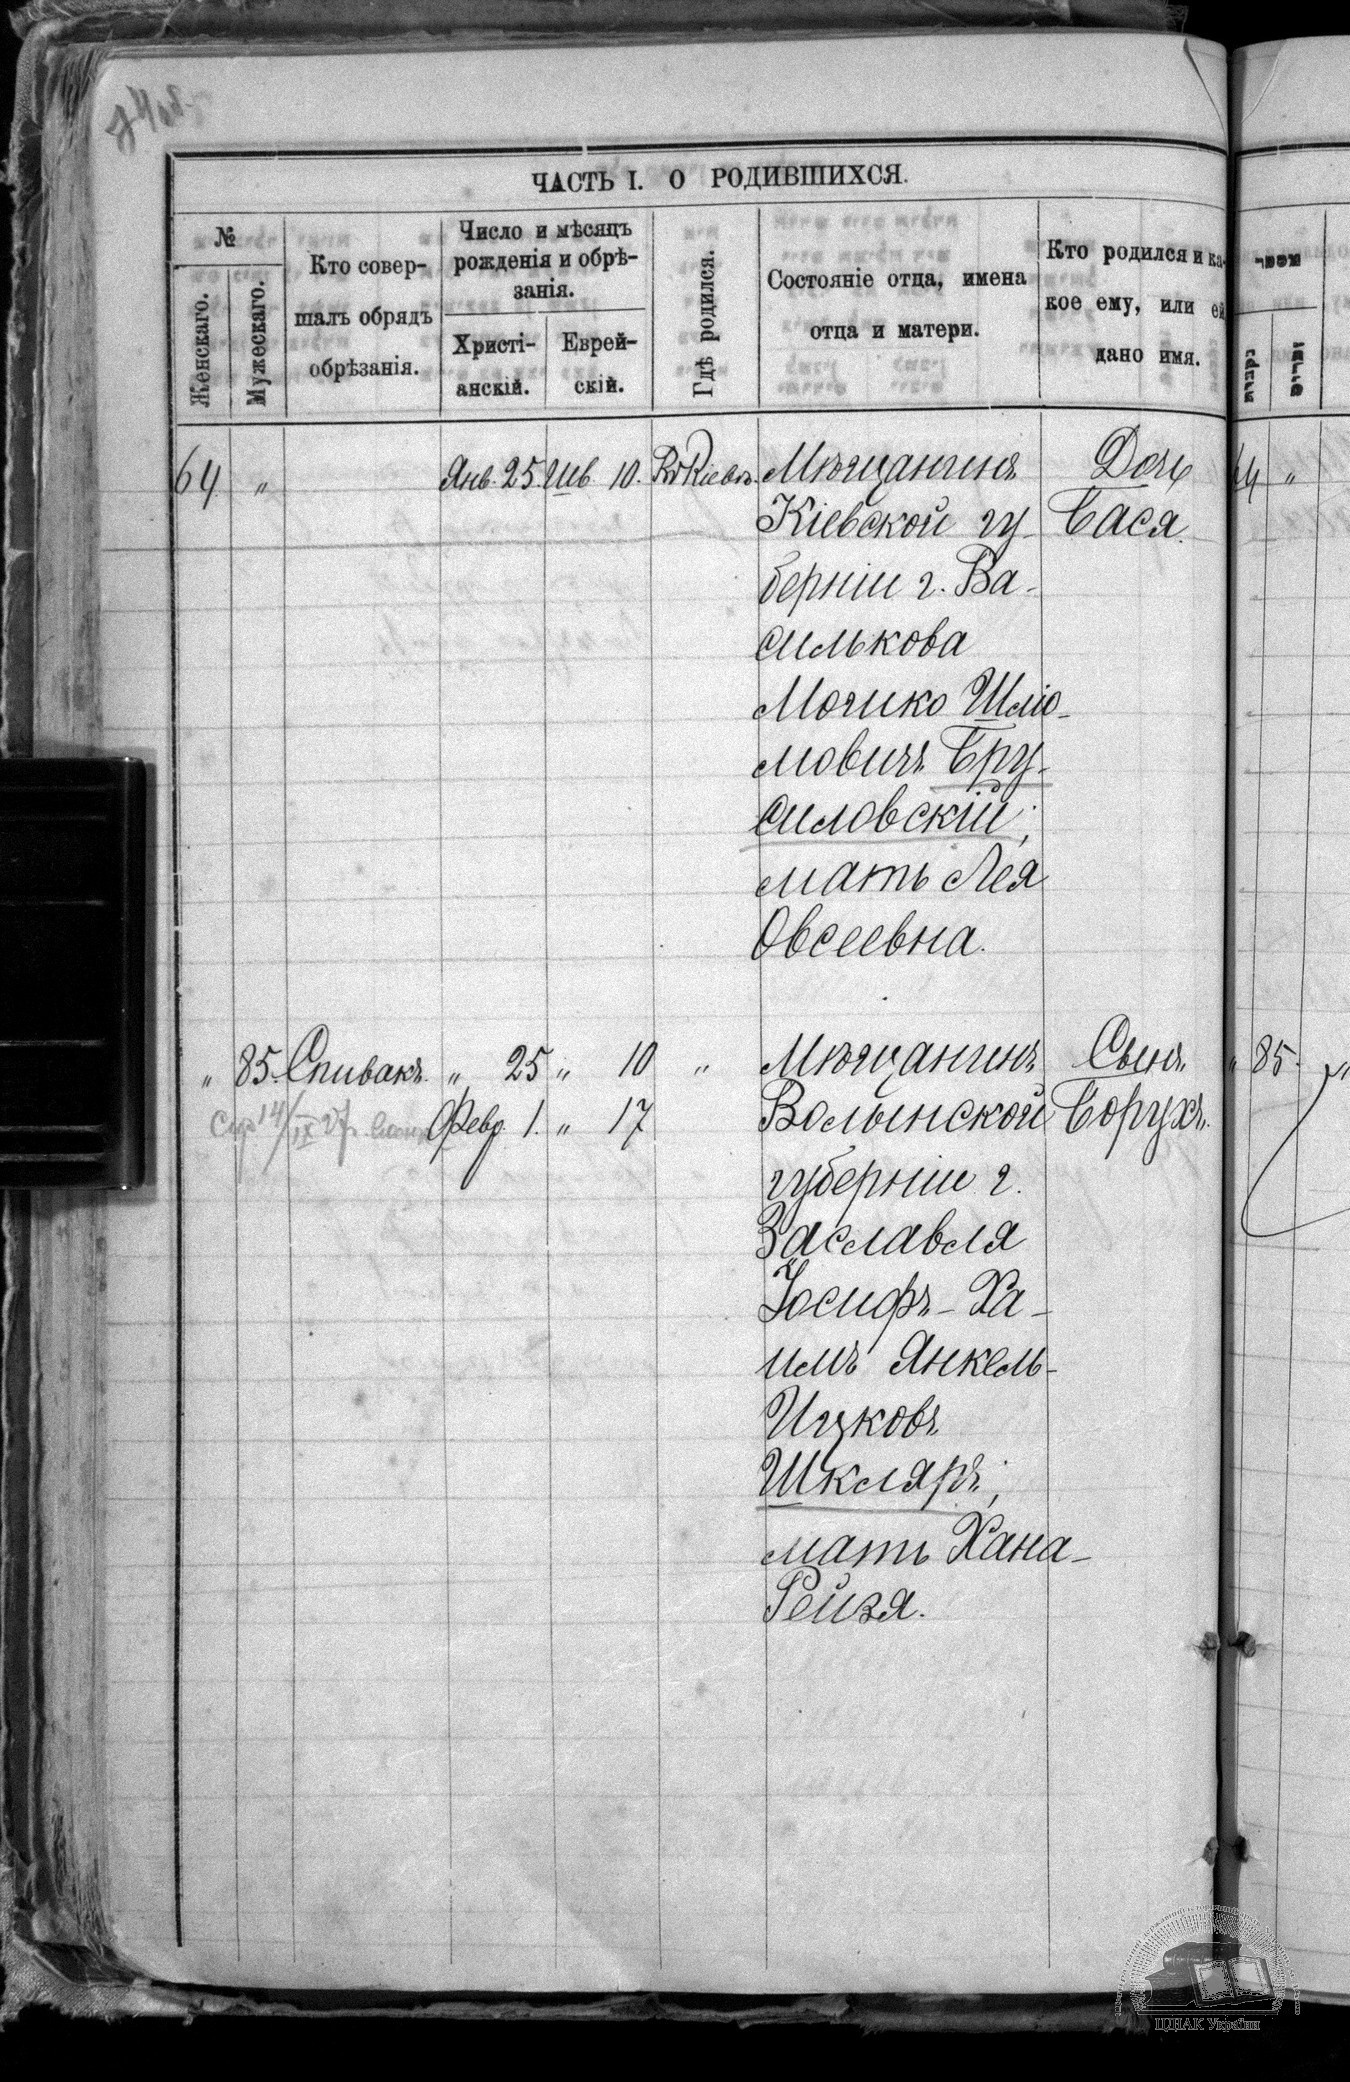 ЧАСТЬ I. О РОДИВШИХСЯ.
№
Женскаго.
Мужескаго.
Кто совер-
шалъ обрядъ
обрѣзанія.
Число и мѣсяцъ
рожденія и обрѣ-
занія.
Христі-
анскій.
Еврей-
скій.
Гдѣ родился.
Состояніе отца, имена
отца и матери.
Кто родился и ка-
кое ему, или ей
дано имя.
64 „ Янв. 25. Шв. 10. Въ Кіевѣ. Мѣщанинъ Дочь
Кіевской гу- Бася.
берніи г. Ва-
силькова
Мошко Шлiо-
мовичъ Бру-
силовскій;
мать Лея
Овсеевна.
„ 85. Спивакъ. „ 25 „ 10 „ Мѣщанинъ Сынъ
Февр. 1. „ 17 Волынской Борухъ.
губерніи г.
Заславля
Іосифъ-Ха-
имъ Янкель-
Ицковъ
Шкляръ;
мать Хана-
Рейзя.
64 „
„ 85.
ЦДІАК України